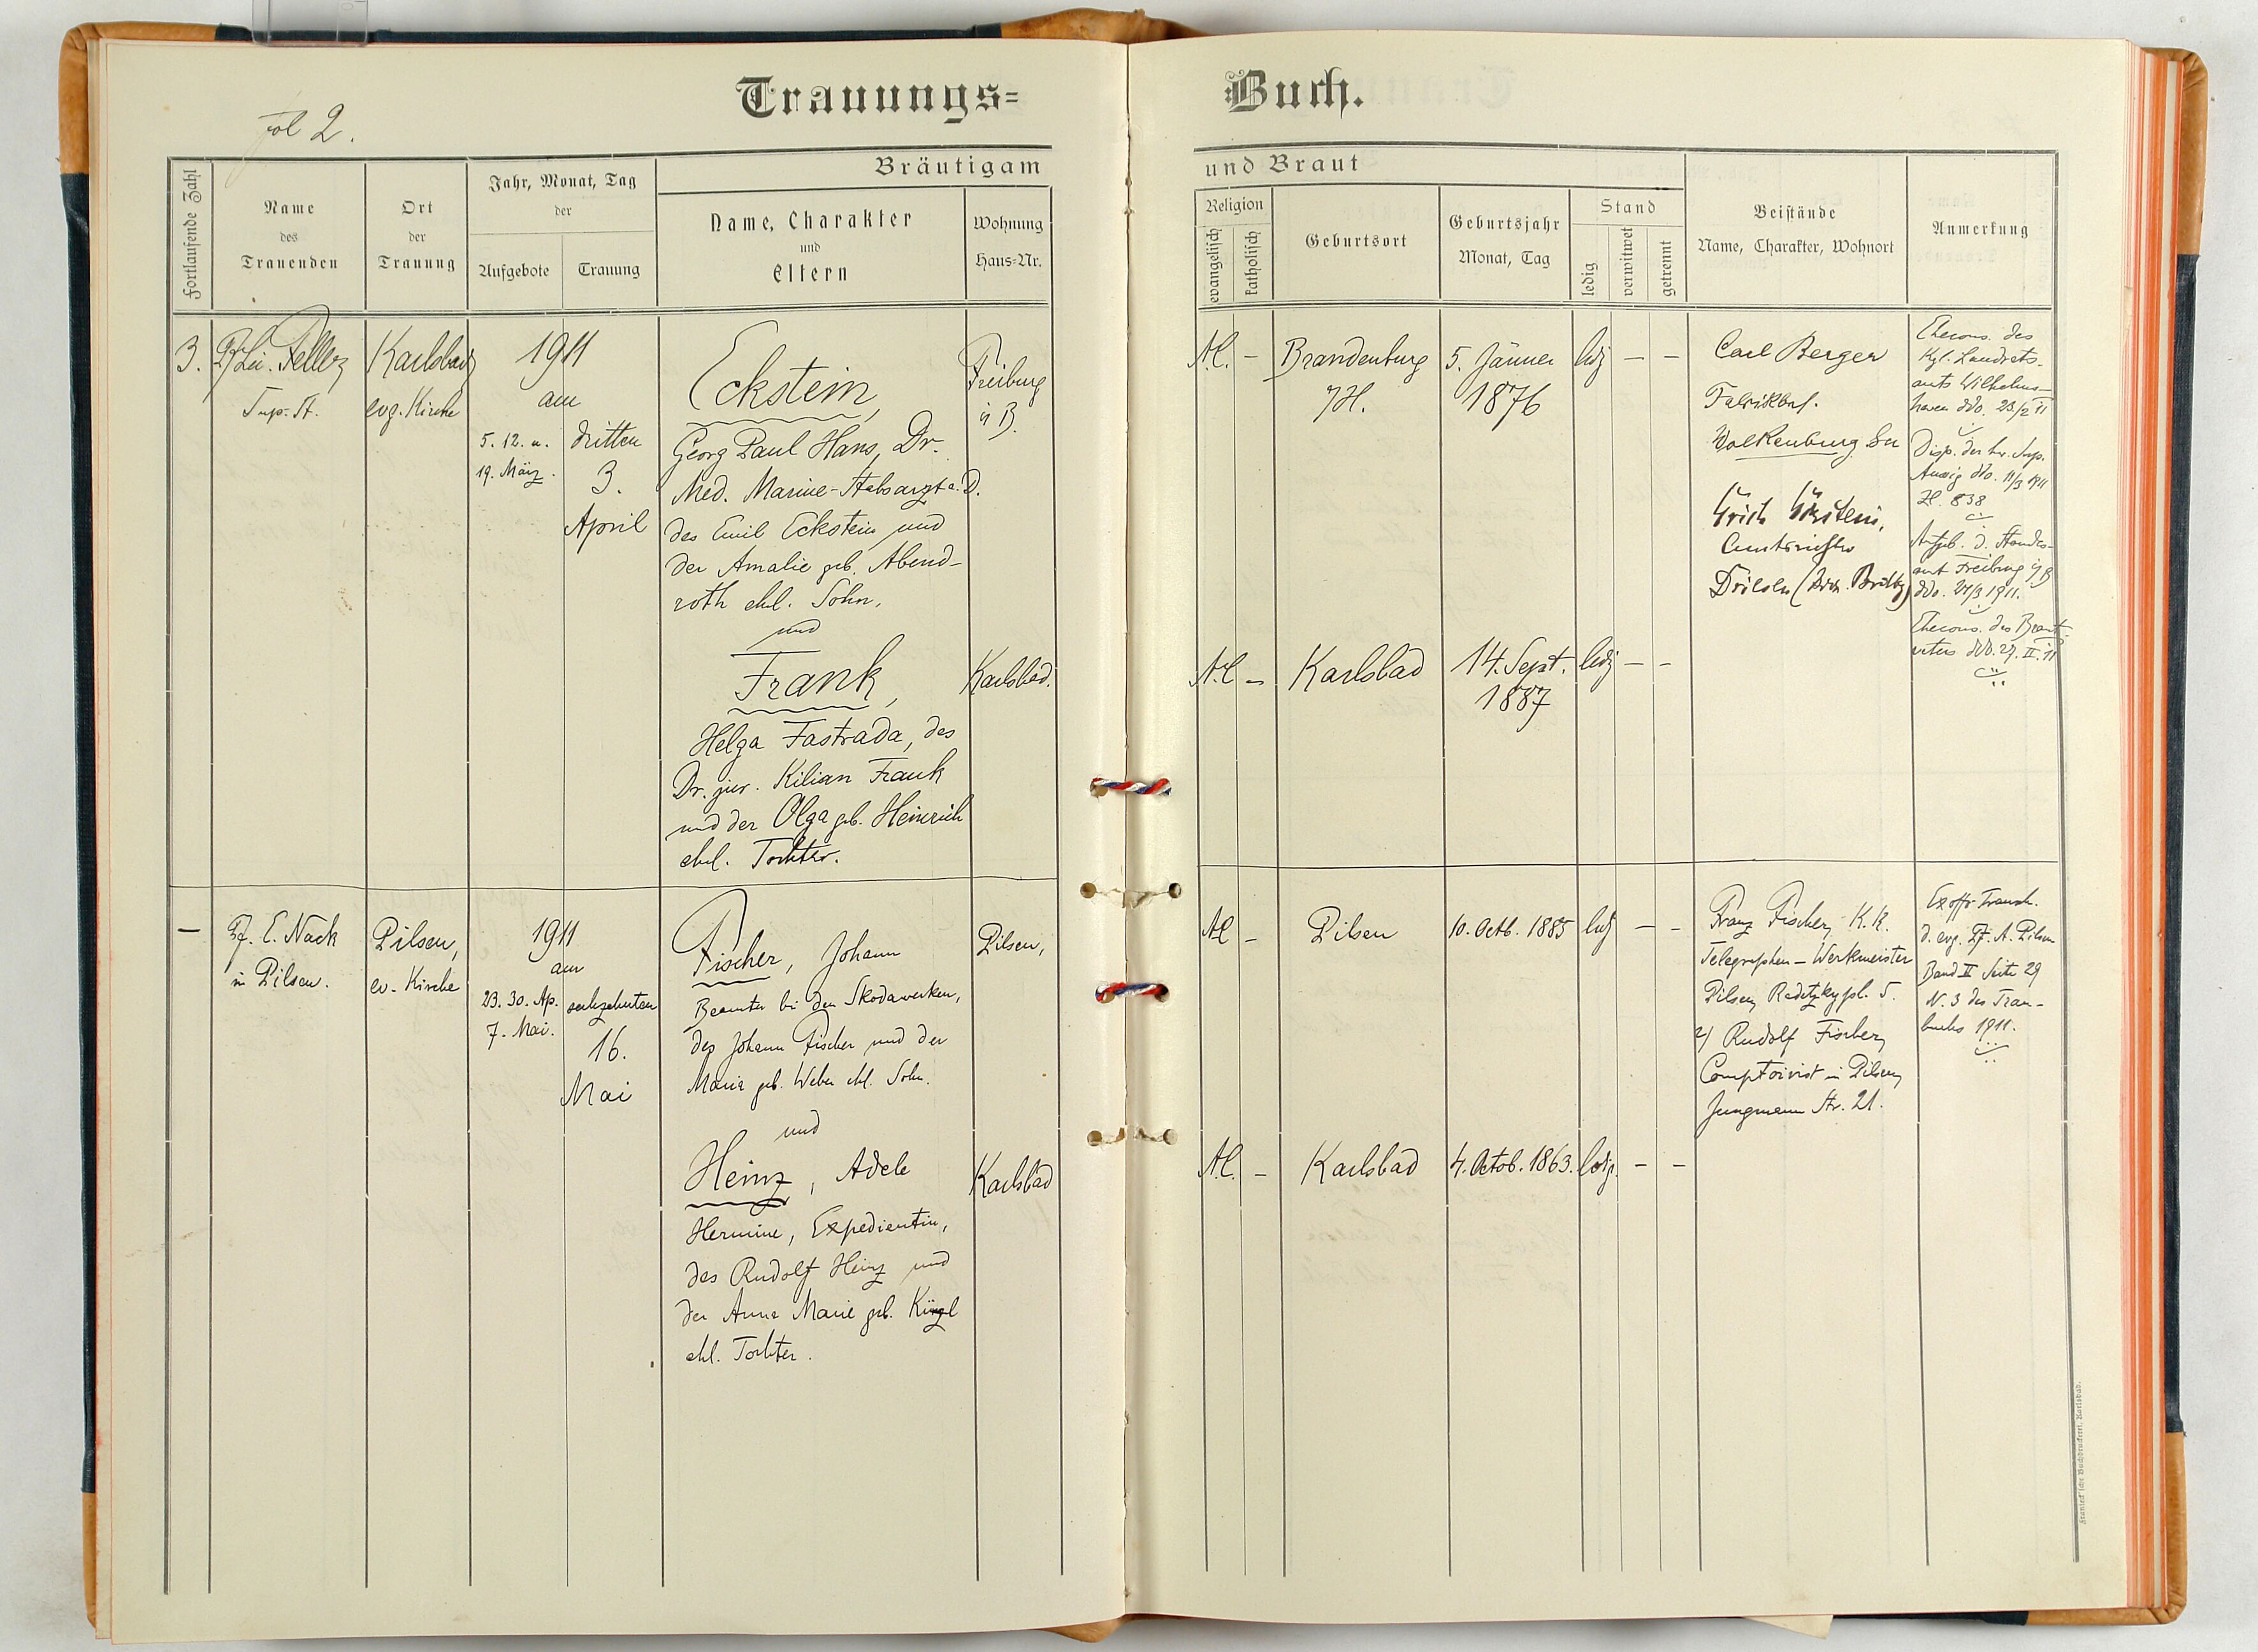 Trauungs=
Buch.
fol 2.
Fortlaufende Zahl
Name
des
Trauenden
Ort
der
Trauung
Jahr, Monat, Tag
der
Aufgebote
Trauung
Bräutigam
Name, Charakter
und
Eltern
Wohnung
Haus=Nr.
und Braut
Religion
evangelisch
katholisch
Geburtsort
Geburtsjahr
Monat, Tag
Stand
ledig
verwitwet
getrennt
Beistände
Name, Charakter, Wohnort
Anmerkung
3.
Feller
Sup. St.
Karlsbad
evg. Kirche
1911
am
5. 12. u.
19. März.
dritten
3.
April
Eckstein,
Georg Paul Hans, Dr.
Med. Marine-Stabsarzt a. D.
des Emil Eckstein und
der Amalie geb. Abend-
roth ehl. Sohn,
und
Frank,
Helga Fastrada, des
Dr. jur. Kilian Frank
und der Olga geb. Heinrich
ehl. Tochter.
Freiburg
i/B.
Karlsbad.
A.C. –
Brandenburg
/H.
5. Jänner
1876
ledg – –
A.C –
Karlsbad
14. Sept.
1887
ledg – –
Carl Berger
Fabrikbes.
Wolkenburg
Erich Eckstein,
Amtsrichter
Driesen
Ehecons. des
Kgl. Landrats-
amts Wilhelms-
haven ddo. 23/2 11
Disp. der Sup.
Aussig ddo. 11/3 1911
Zl. 838
Aufgeb. d. Standes-
amt Freiburg i/B
ddo. 21/3 1911.
Ehecons. des Braut-
vaters ddo. 27. II. 11
–
Pf. E. Nack
in Pilsen.
Pilsen,
ev. Kirche
1911
am
23. 30. Ap.
7. Mai.
sechzehnten
16.
Mai
Fischer, Johann
Beamter bei den Skodawerken,
des Johann Fischer und der
Marie geb. Weber ehl. Sohn.
und
Heinz, Adele
Hermine, Expedientin,
des Rudolf Heinz und
der Anna Marie geb.
ehl. Tochter.
Pilsen,
Karlsbad
AC –
Pilsen
10. Octb. 1885
ledg – –
A.C. –
Karlsbad
4. Octob. 1863.
ledg. – –
Franz Fischer, K. K.
Telegraphen-Werkmeister
Pilsen, Radetzkypl. 5.
2/ Rudolf Fischer,
Comptoirist in Pilsen,
Jungmann Str. 21.
Ex offo Trausch.
d. evg. Pf. A. Pilsen
Band II Seite 29
N. 3 des Trau-
buches 1911.
Franieck'sche Buchdruckerei, Karlsbad.